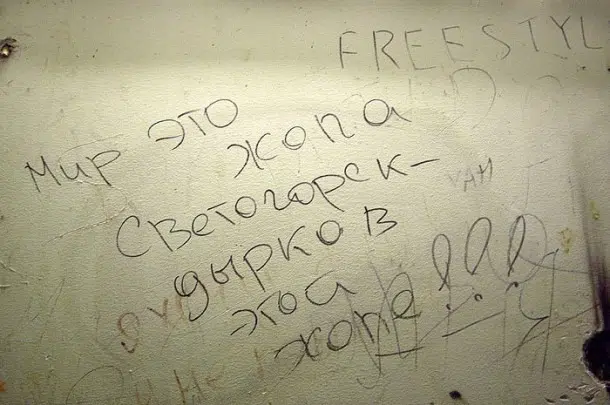 FREESTYL
Мир это
жопа
Светогорск-
дырко в
этой
жопе!!!